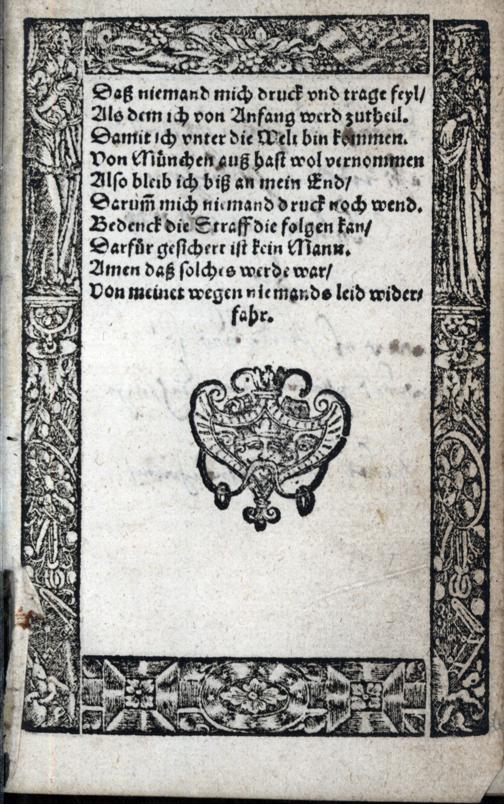 Daß niemand mich druck vnd trage feyl/
Als dem ich von Anfang werd zutheil.
Damit ich vnter die Welt bin kommen.
Von München auß hast wol vernommen
Also bleib ich biß an mein End/
Darum̃ mich niemand druck noch wend.
Bedenck die Straff die folgen kan/
Darfür gesichert ist kein Mann.
Amen daß solches werde war/
Von meinet wegen niemands leid wider/
fahr.